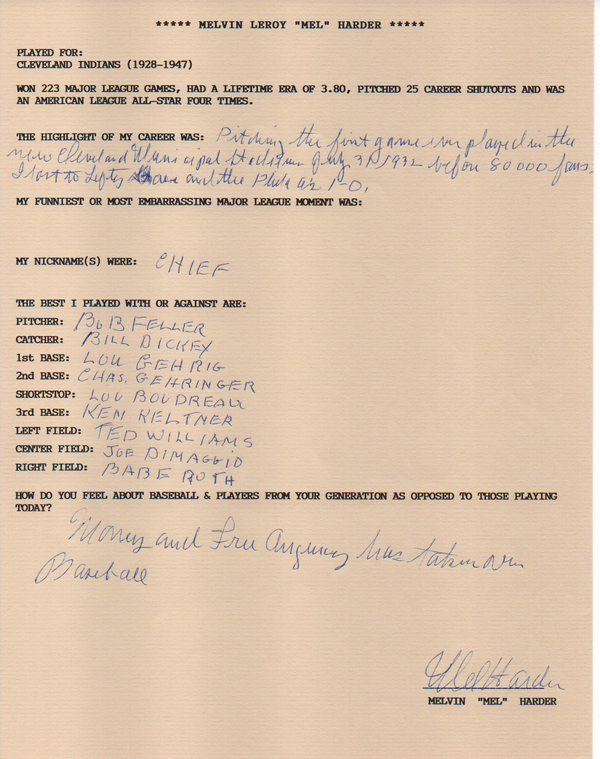 ***** MELVIN LEROY "MEL" HARDER *****
PLAYED FOR:
CLEVELAND INDIANS (1928-1947)
WON 223 MAJOR LEAGUE GAMES, HAD A LIFETIME ERA OF 3.80, PITCHED 25 CAREER SHUTOUTS AND WAS
AN AMERICAN LEAGUE ALL-STAR FOUR TIMES.
THE HIGHLIGHT OF MY CAREER WAS: Pitching the first game ever played in the
new Cleveland Municipal Stadium July 31 1932 before 80 000 fans.
I lost to Lefty Grove and the Phila a's 1-0.
MY FUNNIEST OR MOST EMBARRASSING MAJOR LEAGUE MOMENT WAS:
MY NICKNAME(S) WERE: CHIEF
THE BEST I PLAYED WITH OR AGAINST ARE:
PITCHER: BOB FELLER
CATCHER: BILL DICKEY
1st BASE: LOU GEHRIG
2nd BASE: CHAS. GEHRINGER
SHORTSTOP: LOU BOUDREAU
3rd BASE: KEN KELTNER
LEFT FIELD: TED WILLIAMS
CENTER FIELD: JOE DIMAGGIO
RIGHT FIELD: BABE RUTH
HOW DO YOU FEEL ABOUT BASEBALL & PLAYERS FROM YOUR GENERATION AS OPPOSED TO THOSE PLAYING
TODAY?
Money and Free Angency has taken over
Baseball
Mel Harder
MELVIN "MEL" HARDER